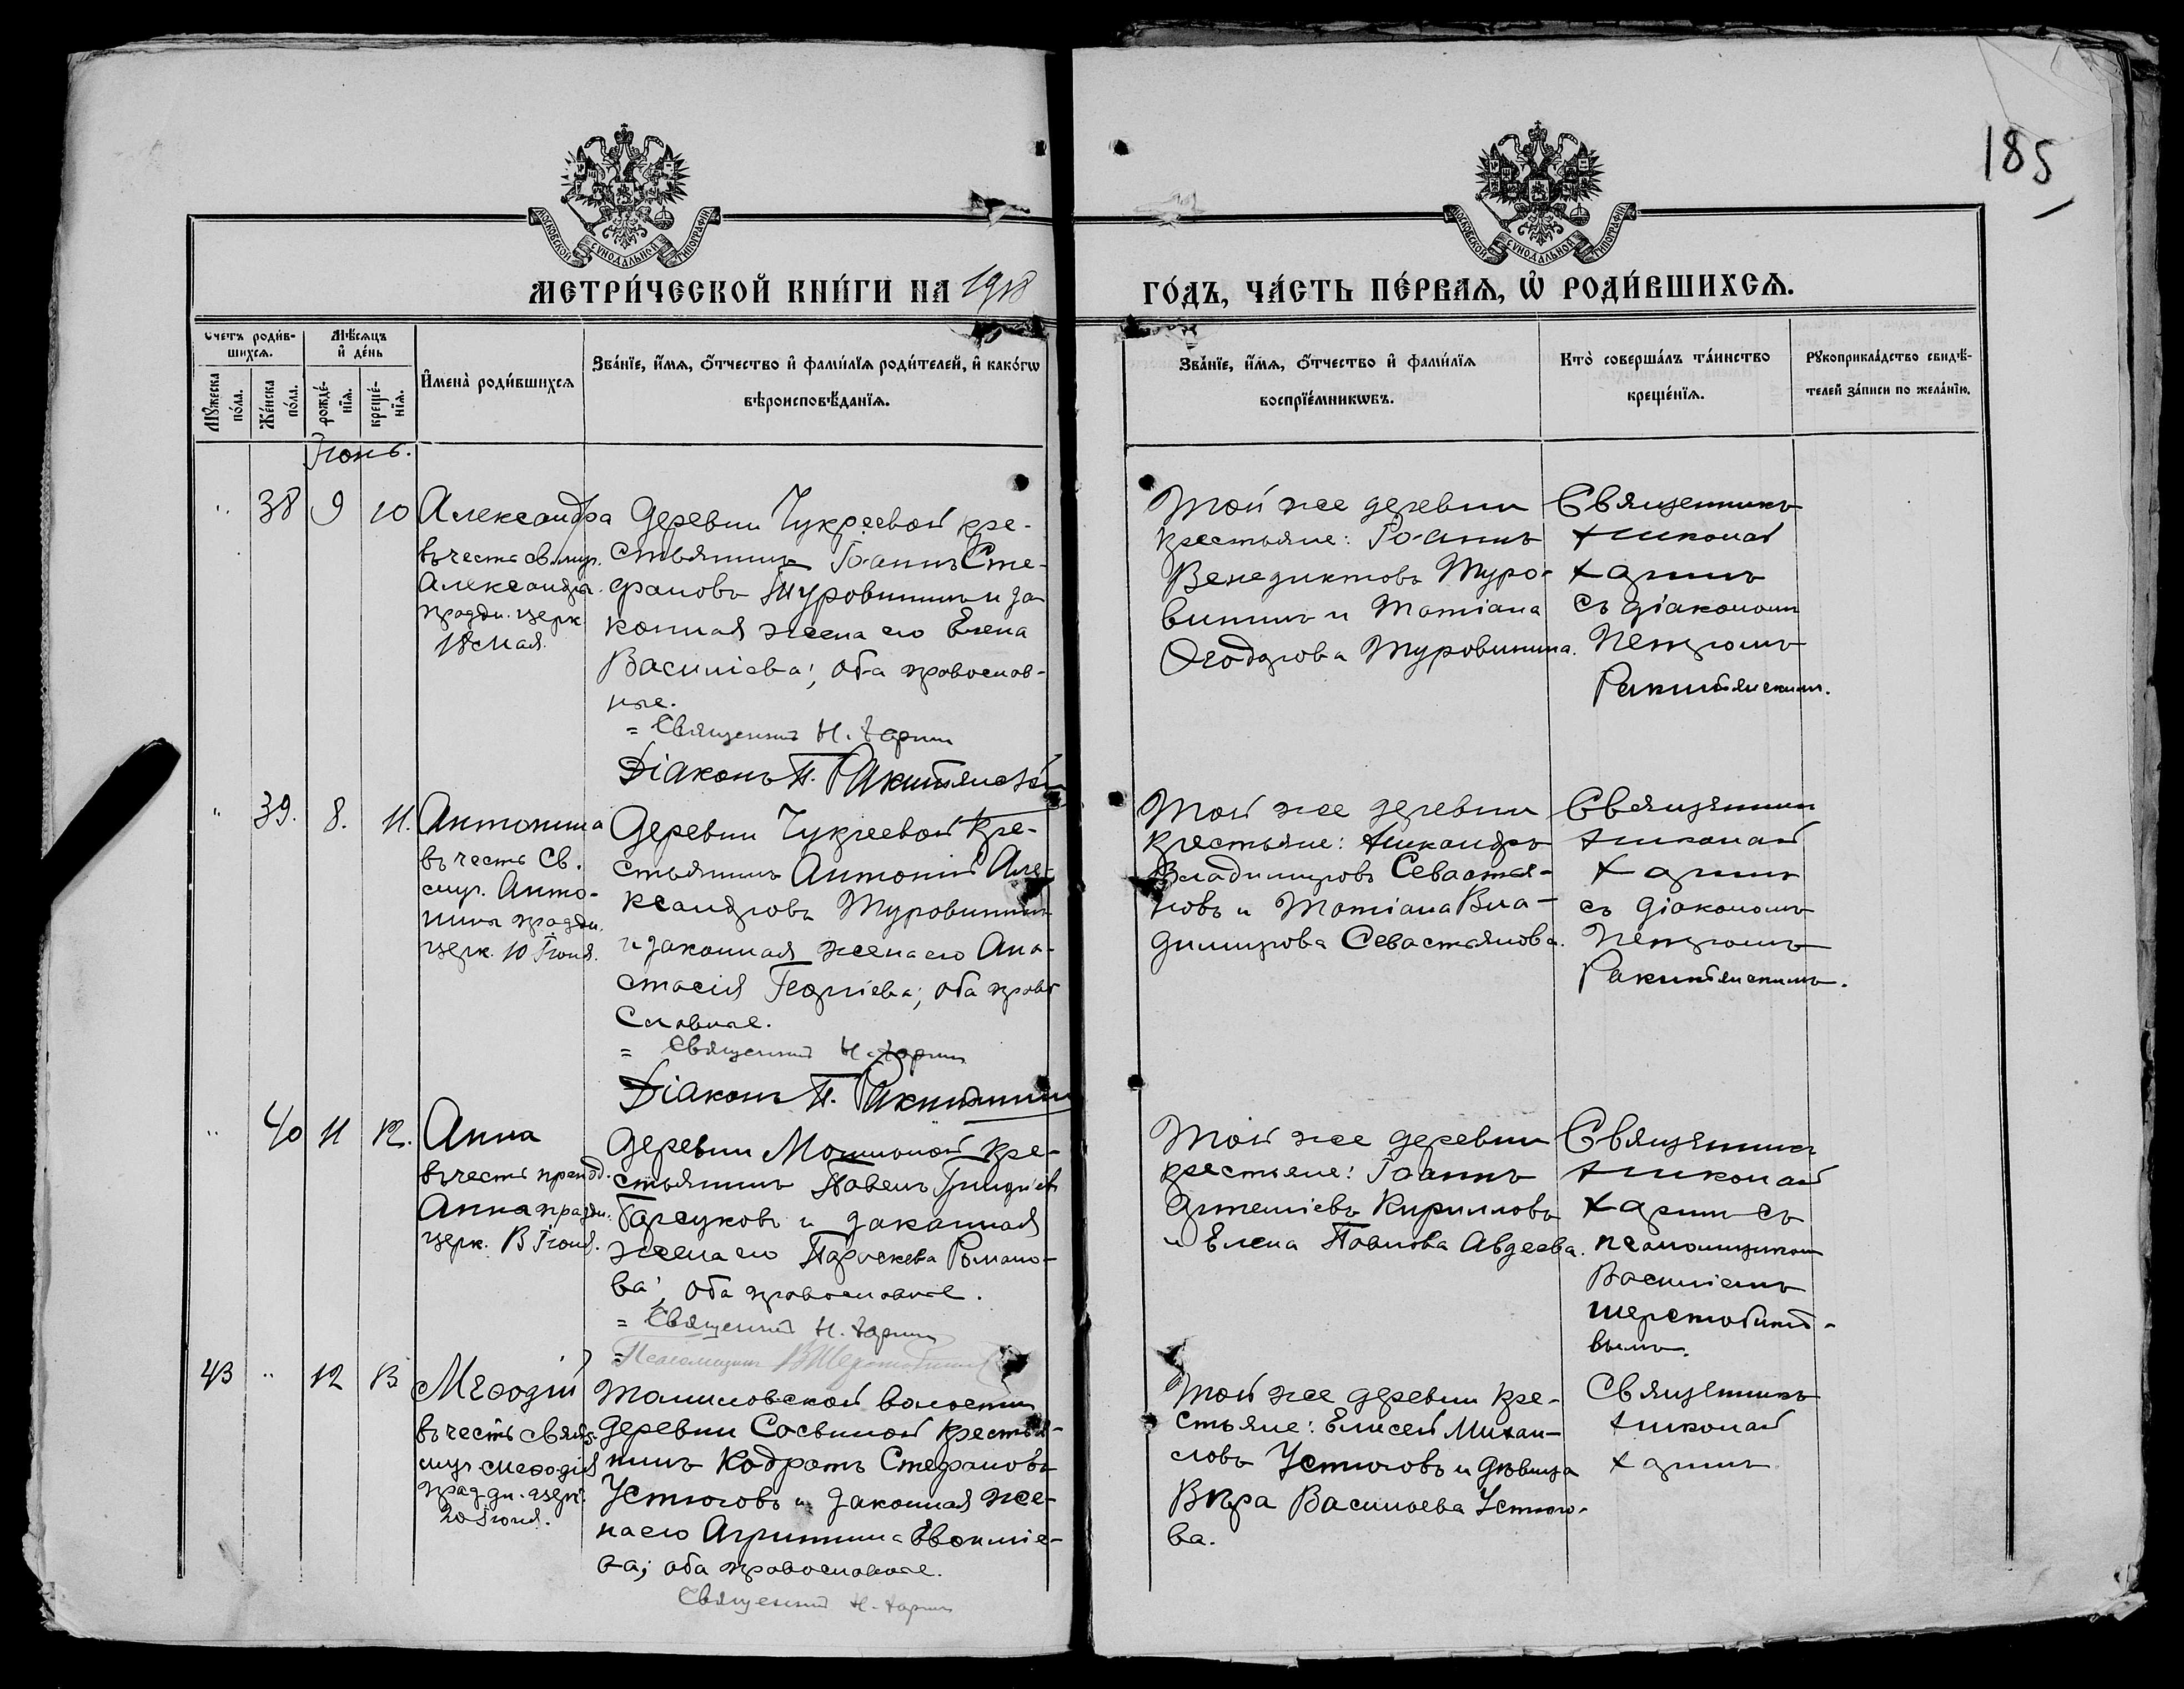 185
МОСКОВСКОЙ СѴНОДАЛЬНОЙ ТИПОГРАФІИ
МОСКОВСКОЙ СѴНОДАЛЬНОЙ ТИПОГРАФІИ
МЕТРИ́ЧЕСКОЙ КНИ́ГИ НА 1918 ГО́ДЪ, ЧА́СТЬ ПЕ́РВАѦ, Ѡ҆ РОДИ́ВШИХСѦ.
Счетъ роди́в-
шихсѧ.
Мѣ́сѧцъ
и҆ де́нь
Мꙋ́жеска
по́ла.
Же́нска
по́ла.
рожде́-
нїѧ.
креще́-
нїѧ.
И҆мена̀ роди́вшихсѧ
Зва́нїе, и҆́мѧ, ѻ҆́тчество и҆ фами́лїѧ роди́телей, и҆ како́гѡ
вѣроисповѣ́данїѧ.
Зва́нїе, и҆́мѧ, ѻ҆́тчество и҆ фами́лїѧ
воспрїе́мникѡвъ.
Кто̀ соверша́лъ та́инство
креще́нїѧ.
Рꙋкоприкла́дство свидѣ́-
телей за́писи по жела́нїю.
Іюнь.
" 38 9 10
Александра
въ честь св. муч.
Александры.
праздн. церк.
18 Мая.
Деревни Чукреевой кре-
стьянинъ Іоаннъ Сте-
фановъ Туровининъ и за
конная жена его Елена
Василіева; оба православ-
ные.
= Священникъ Н. Харин
Діаконъ П. Ракитянскій
Той же деревни
крестьяне: Іоаннъ
Венедиктовъ Туро-
вининъ и Татіана
Ѳеодорова Туровинина.
Священникъ
Николай
Харинъ
съ діакономъ
Петромъ
Ракитянским.
" 39. 8. 11.
Антонина
въ честь Св.
муч. Анто-
нины праздн.
церк. 10 Іюня.
Деревни Чукреевой кре-
стьянинъ Антоній Але-
ксандровъ Туровининъ
и законная жена его Ана-
стасія Георгіева; оба право
славные.
= Священник Н. Харин
Діаконъ П. Ракитянский
Той же деревни
крестьяне: Никандръ
Владимировъ Севастья-
новъ и Татіана Вла-
димирова Севастьянова.
Священник
Николай
Харинъ
съ діакономъ
Петромъ
Ракитянскимъ.
" 40 11 12.
Анна
въ честь препод.
Анна праздн.
церк. 13 Іюня.
Деревни кре-
стьянинъ Павелъ Григоріев
Барсуковъ и законная
жена его Параскева Романо-
ва; оба православные.
= Священник Н. Харин
= Псаломщик В Шерстобитов
Той же деревни
крестьяне: Іоаннъ
Артеміевъ Кирилловъ
и Елена Павлова Авдеева.
Священникъ
Николай
Харинъ съ
псаломщиком
Василіемъ
Шерстобито-
вымъ.
43 " 12 13
Меѳодій
въ честь священ.
муч. Меѳодія
праздн. церк.
20 Іюня.
Томиловской волости
деревни Сосвиной крестья-
нинъ Кодратъ Стефановъ
Устюговъ и законная же-
на его Агриппина Евѳиміе-
ва; оба православные.
Священник Н. Харин
Той же деревни кре-
стьяне: Елисей Михаи-
ловъ Устюговъ и дѣвица
Вѣра Васильева Устюго-
ва.
Священникъ
Николай
Харинъ